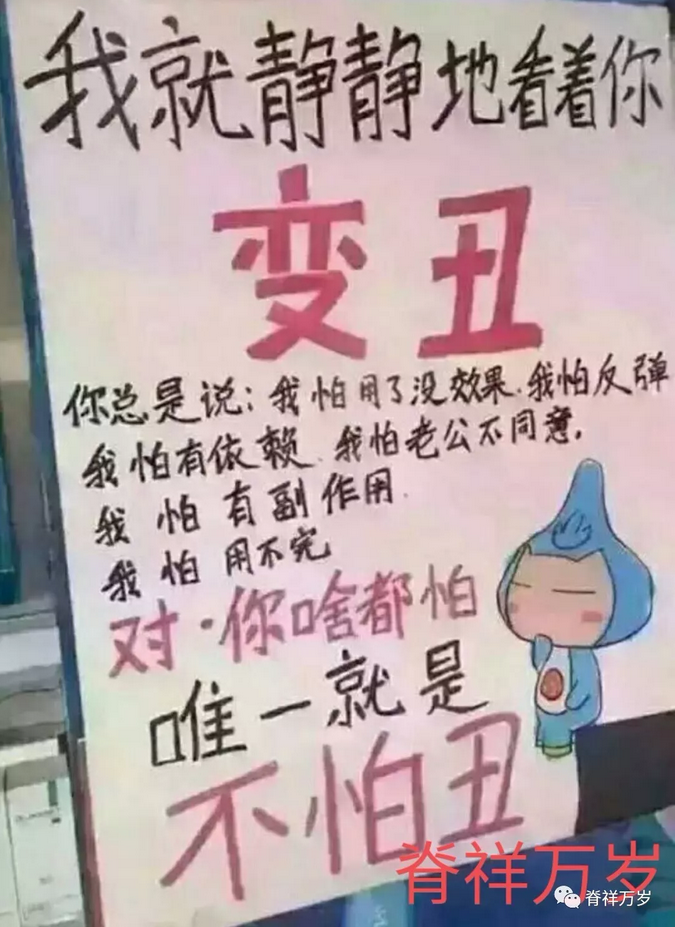 我就静静地看着你
变丑
你总是说：我怕用了没效果.我怕反弹
我怕有依赖.我怕老公不同意.
我怕有副作用.
我怕用不完
对·你啥都怕
唯一就是
不怕丑
脊祥万岁
脊祥万岁